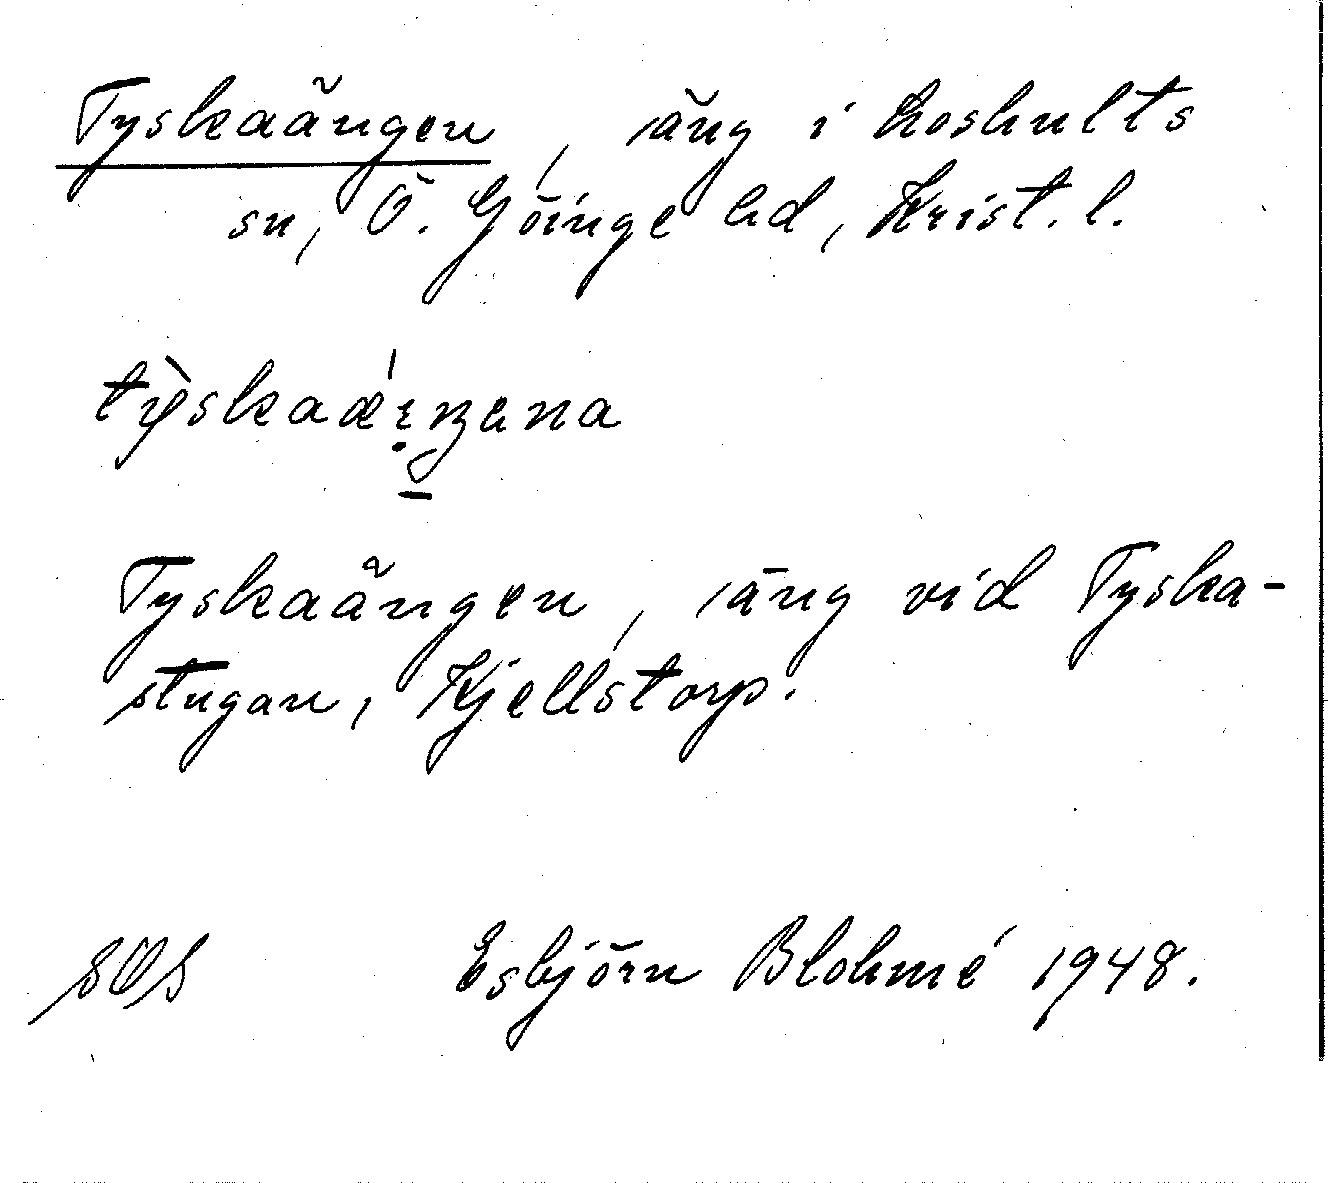 Tyskaängen, äng i Loshults
sn, Ö. Göinge hd, Krist. l.
Tyskaängen, äng vid Tyska-
stugan, Kjellstorp.
Esbjörn Blohmé 1948.